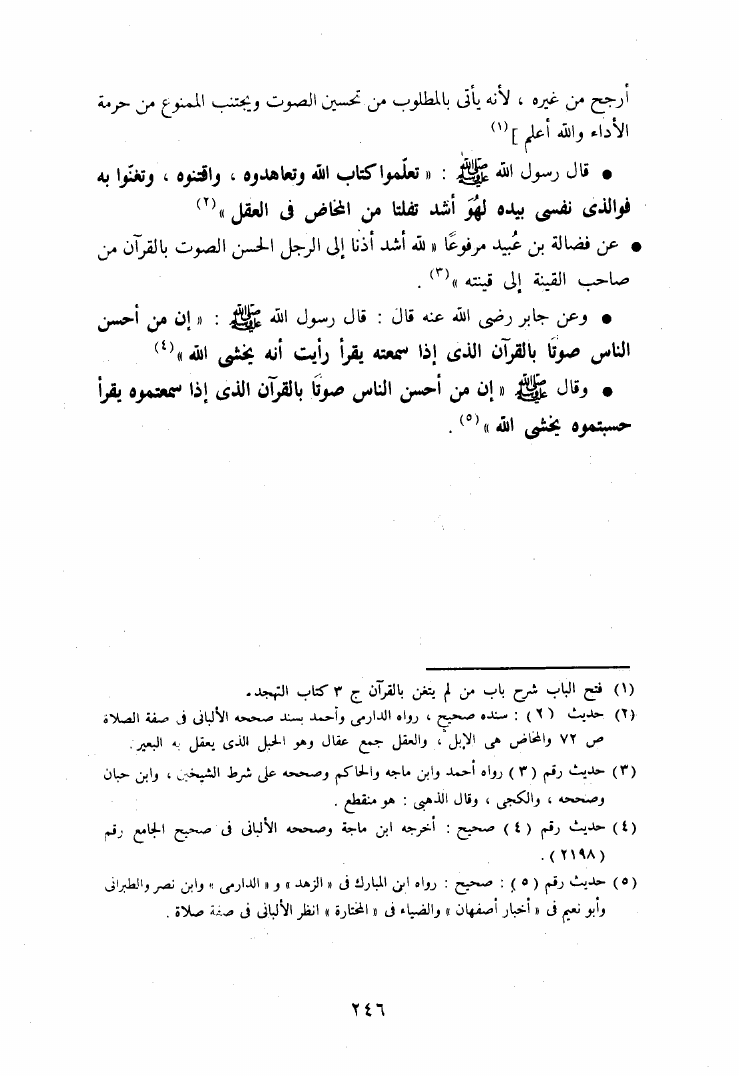 أرجح من غيره ، لأنه يأتى بالمطلوب من تحسين الصوت ويجتنب الممنوع من حرمة
الأداء والله أعلم ](١)
● قال رسول الله ﷺ : « تعلّموا كتاب الله وتعاهدوه ، واقتنوه ، وتغنّوا به
فوالذى نفسى بيده لهُوَ أشد تفلتا من المخاض فى العقل »(٢)
● عن فضالة بن عُبيد مرفوعًا « لله أشد أذنا إلى الرجل الحسن الصوت بالقرآن من
صاحب القينة إلى قينته »(٣) .
● وعن جابر رضى الله عنه قال : قال رسول الله ﷺ : « إن من أحسن
الناس صوتًا بالقرآن الذى إذا سمعته يقرأ رأيت أنه يخشى الله »(٤)
● وقال ﷺ « إن من أحسن الناس صوتًا بالقرآن الذى إذا سمعتموه يقرأ
حسبتموه يخشى الله »(٥) .
(١) فتح الباب شرح باب من لم يتغن بالقرآن ج ٣ كتاب التهجد .
(٢) حديث (٢) : سنده صحيح ، رواه الدارمى وأحمد بسند صححه الألبانى فى صفة الصلاة
ص ٧٢ والمخاض هى الإبل ، والعقل جمع عقال وهو الحبل الذى يعقل به البعير .
(٣) حديث رقم (٣) رواه أحمد وابن ماجه والحاكم وصححه على شرط الشيخين ، وابن حبان
وصححه ، والكجى ، وقال الذهبى : هو منقطع .
(٤) حديث رقم (٤) صحيح : أخرجه ابن ماجة وصححه الألبانى فى صحيح الجامع رقم
(٢١٩٨) .
(٥) حديث رقم (٥) : صحيح : رواه ابن المبارك فى « الزهد » و « الدارمى » وابن نصر والطبرانى
وأبو نعيم فى « أخبار أصفهان » والضياء فى « المختارة » انظر الألبانى فى صفة صلاة .
٢٤٦